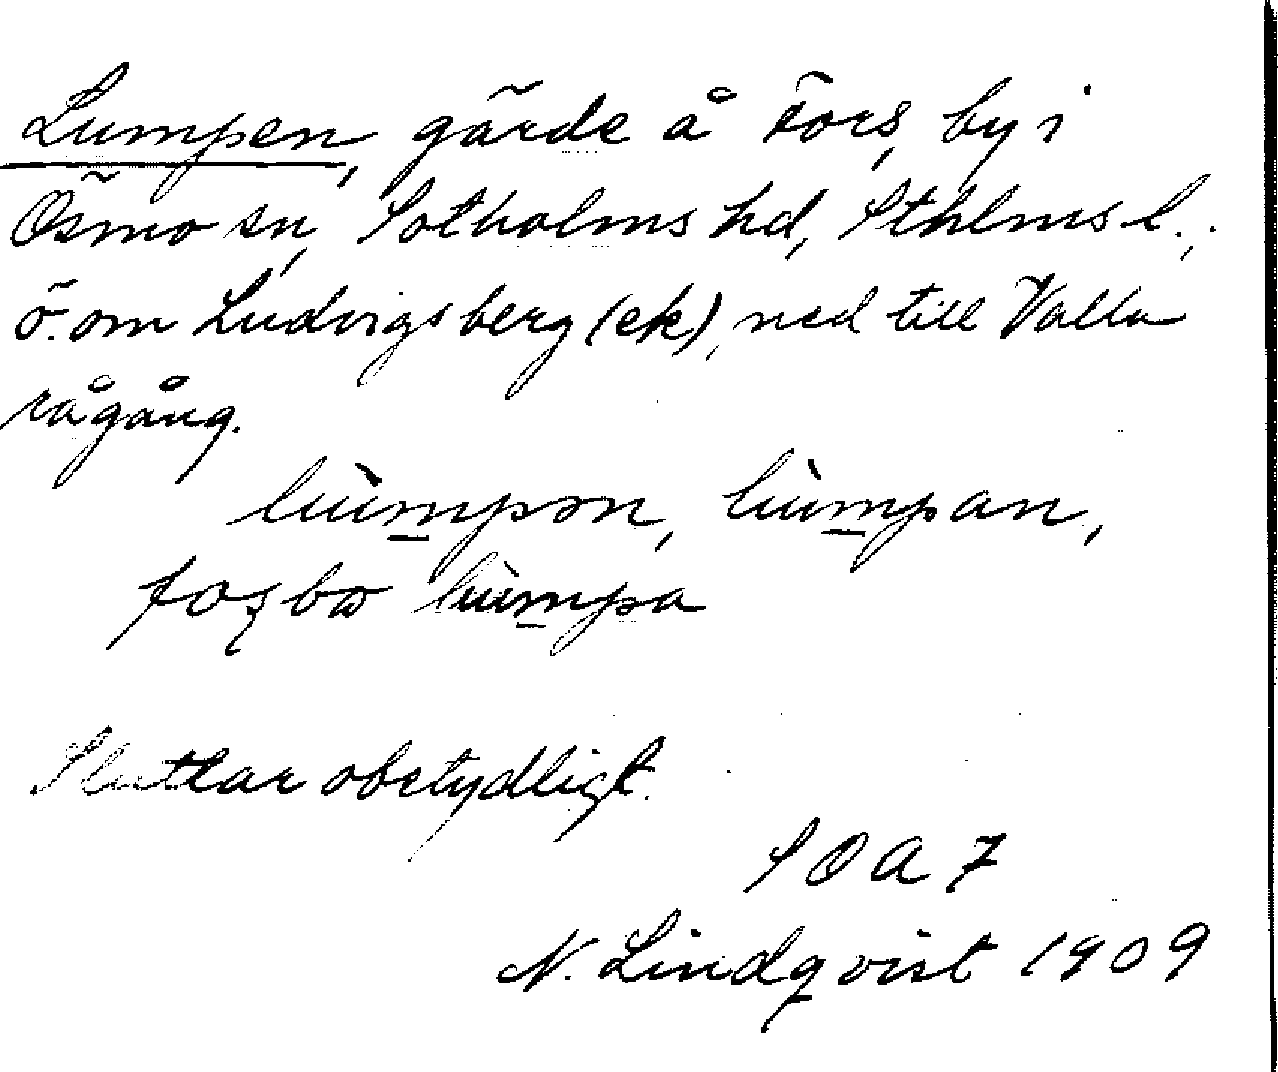 Lumpen, gärde å Fors, by i
Ösmo sn, Sotholms hd, Sthlms l.;
ö. om Ludvigsberg (ek), ned till Valla
rågång.
lùmpən, lùmpan,
lùmpa
Sluttar obetydligt.
SOA 7
N. Lindqvist 1909